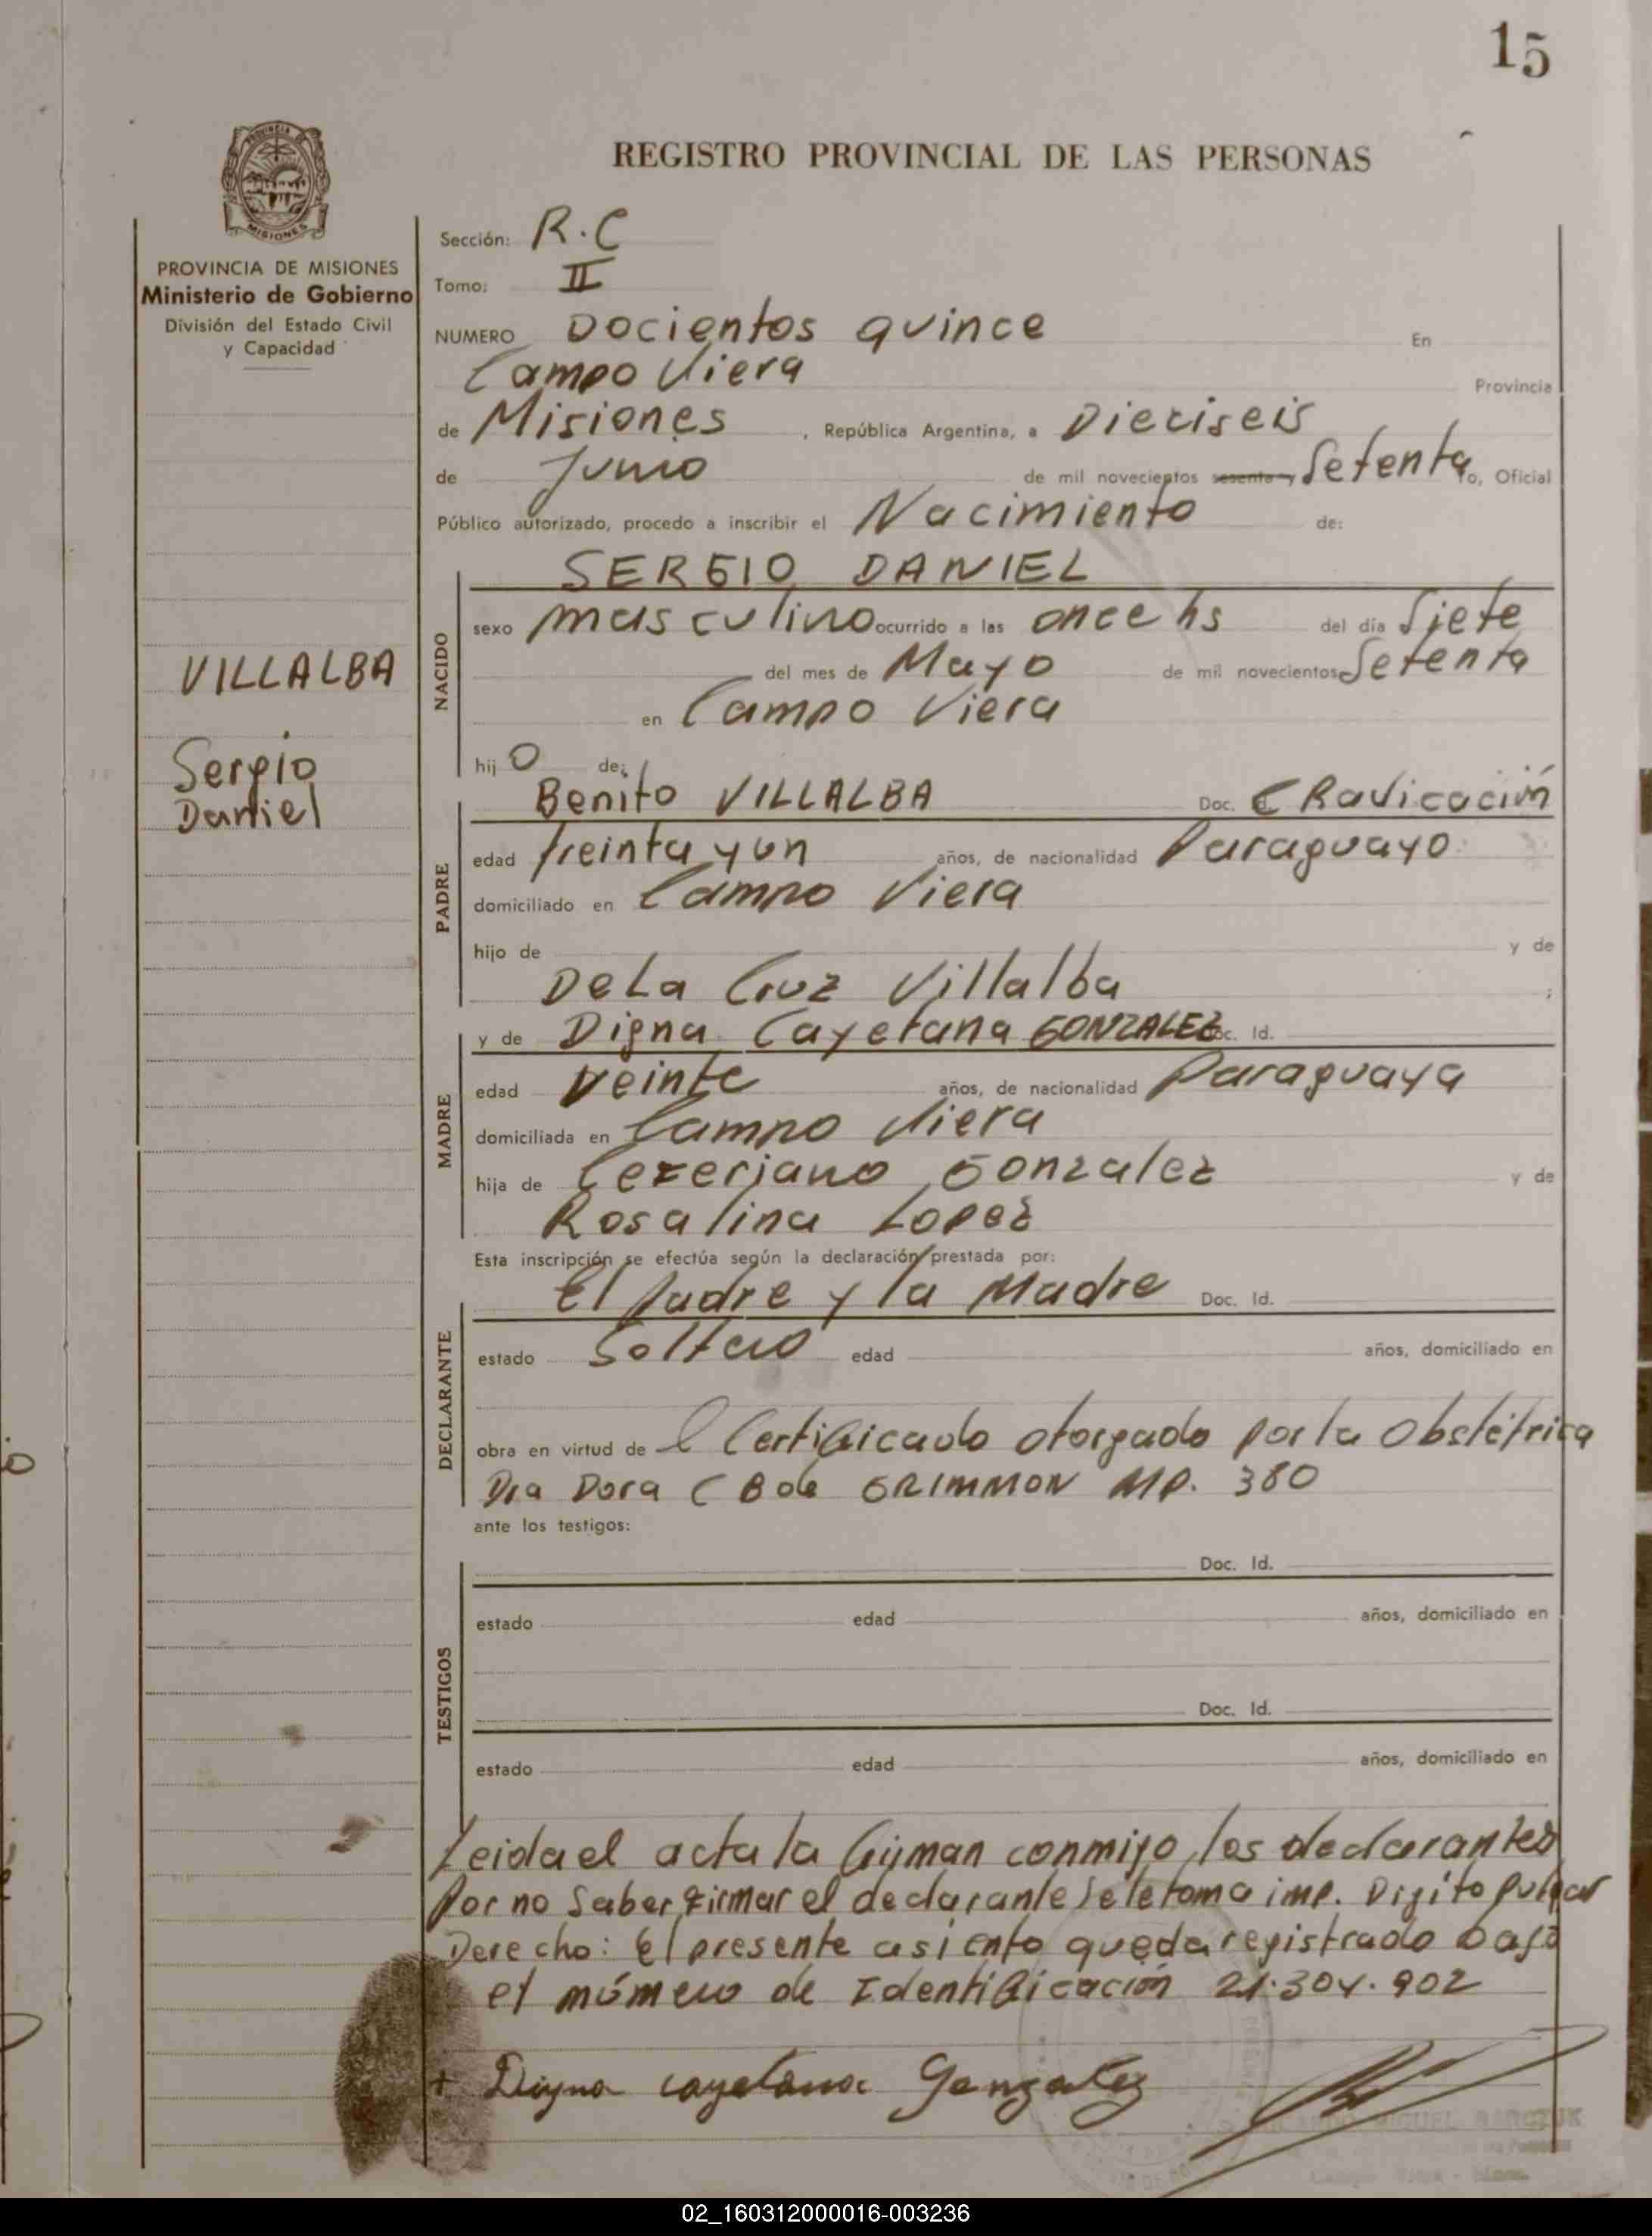 15
REGISTRO PROVINCIAL DE LAS PERSONAS
PROVINCIA DE
MISIONES
PROVINCIA DE MISIONES
Ministerio de Gobierno
División del Estado Civil
y Capacidad
VILLALBA
Sergio
Daniel
Sección: R.C
Tomo: II
NUMERO Docientos quince En
Campo Viera Provincia
de Misiones, República Argentina, a Dieciseis
de Junio de mil novecientos sesenta y Setenta yo, Oficial
Público autorizado, procedo a inscribir el Nacimiento de:
NACIDO
SERGIO DANIEL
sexo masculino ocurrido a las once hs del día Siete
del mes de Mayo de mil novecientos Setenta
en Campo Viera
hijo de:
PADRE
Benito VILLALBA Doc. Id. C Radicación
edad treinta y un años, de nacionalidad Paraguayo
domiciliado en Campo Viera
hijo de y de
De La Cruz Villalba ;
MADRE
y de Digna Cayetana GONZALEZ Doc. Id.
edad veinte años, de nacionalidad Paraguaya
domiciliada en Campo Viera
hija de Gonzalez y de
Rosalina Lopez
Esta inscripción se efectúa según la declaración prestada por:
DECLARANTE
El Padre y la Madre Doc. Id.
estado Soltero edad años, domiciliado en
obra en virtud de l Certificado otorgado por la Obstétrica
Dra Dora C B de GRIMMON MP. 380
ante los testigos:
TESTIGOS
Doc. Id.
estado edad años, domiciliado en
Doc. Id.
estado edad años, domiciliado en
Leida el acta la firman conmigo, los declarantes
Por no Saber firmar el declarante se le toma imp. Digito pulgar
Derecho: El presente asiento queda registrado bajo
el número de Identificación 21.304.902
+ Digna cayetana Gonzalez
MIGUEL
02_160312000016-003236